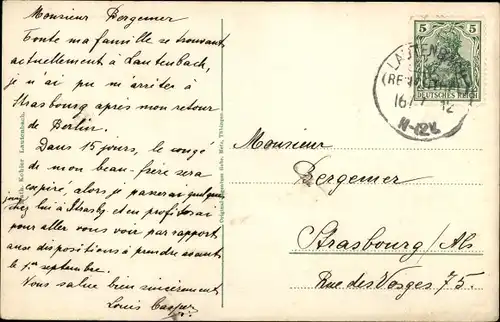 Monsieur Bergemer
Toute ma famille se trouvant
actuellement à Lautenbach,
je n'ai pu m'arrêter à
Strasbourg après mon retour
de Berlin.
Dans 15 jours, le congé
de mon beau-frère sera
expiré, alors je passerai quelques
jours chez lui à Strasbg et en profiterai
pour aller vous voir par rapport
aux dispositions à prendre avant
le 1er septembre.
Vous salue bien sincèrement
Louis Casper
Kohler Lautenbach.
Metz, Thüringen
5 5
DEUTSCHES REICH
LAUTENBACH
16/7 12
11-12V.
Monsieur
Bergemer
Strasbourg/Als
Rue des Vosges 75.